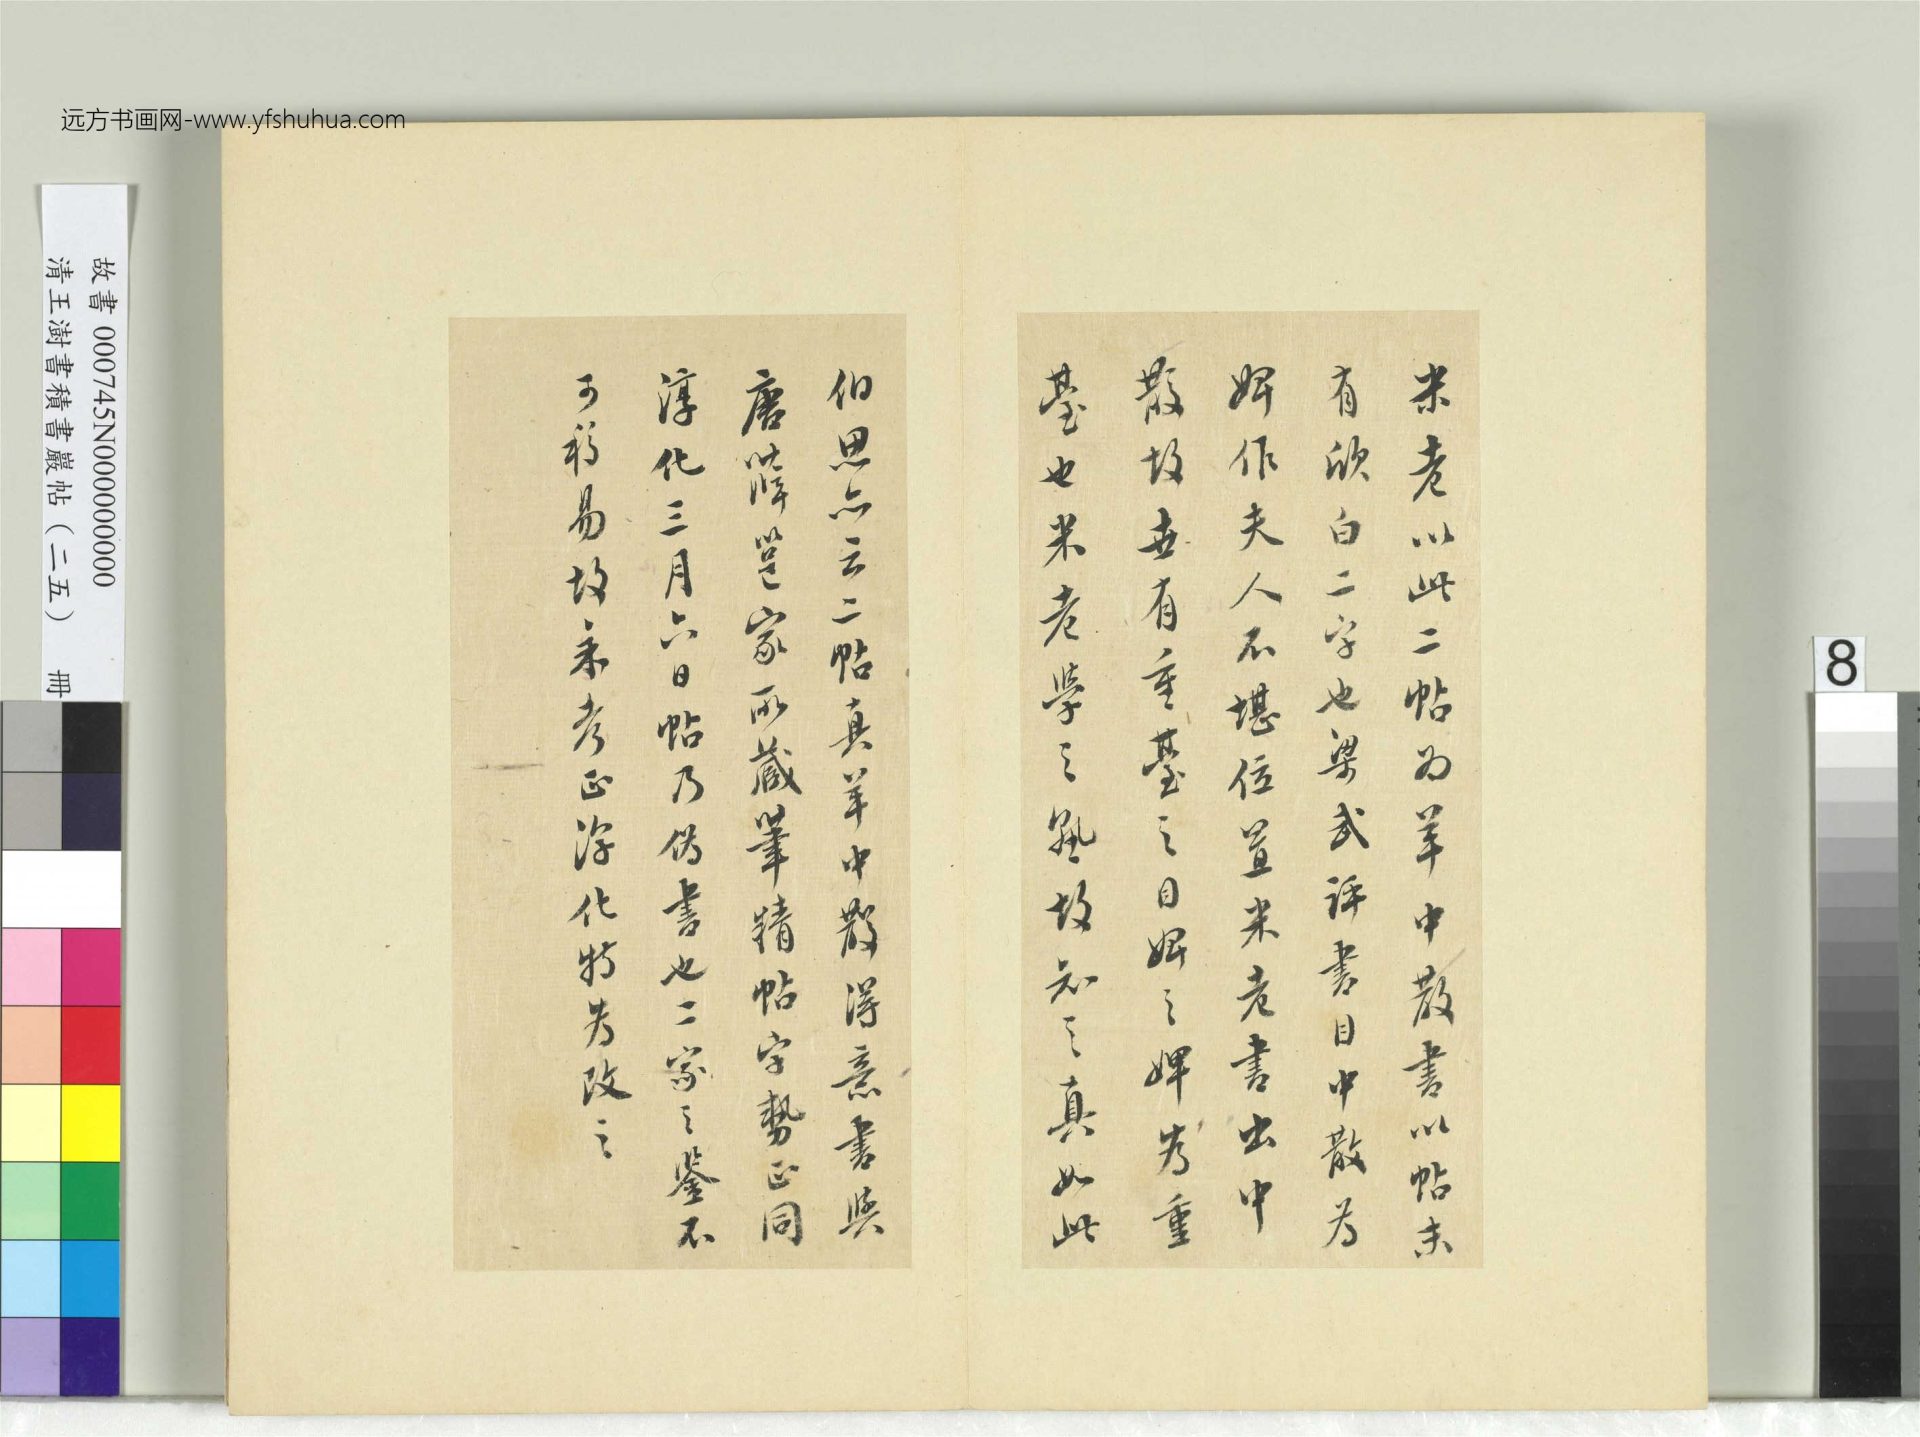 远方书画网-www.yfshuhua.com
故書 000745N000000000
清王澍書積書巖帖（二五） 冊
8
米老以此二帖为羊中散書以帖末
有欣白二字也梁武評書目中散为
婢作夫人不堪位置米老書出中
散故世有重臺之目婢之婢为重
臺也米老學之熟故知之真如此
伯思亦云二帖真羊中散得意書與
唐薛邕家所藏筆精帖字勢正同
淳化三月六日帖乃偽書也二家之鑒不
可移易故余考正淳化特为改之